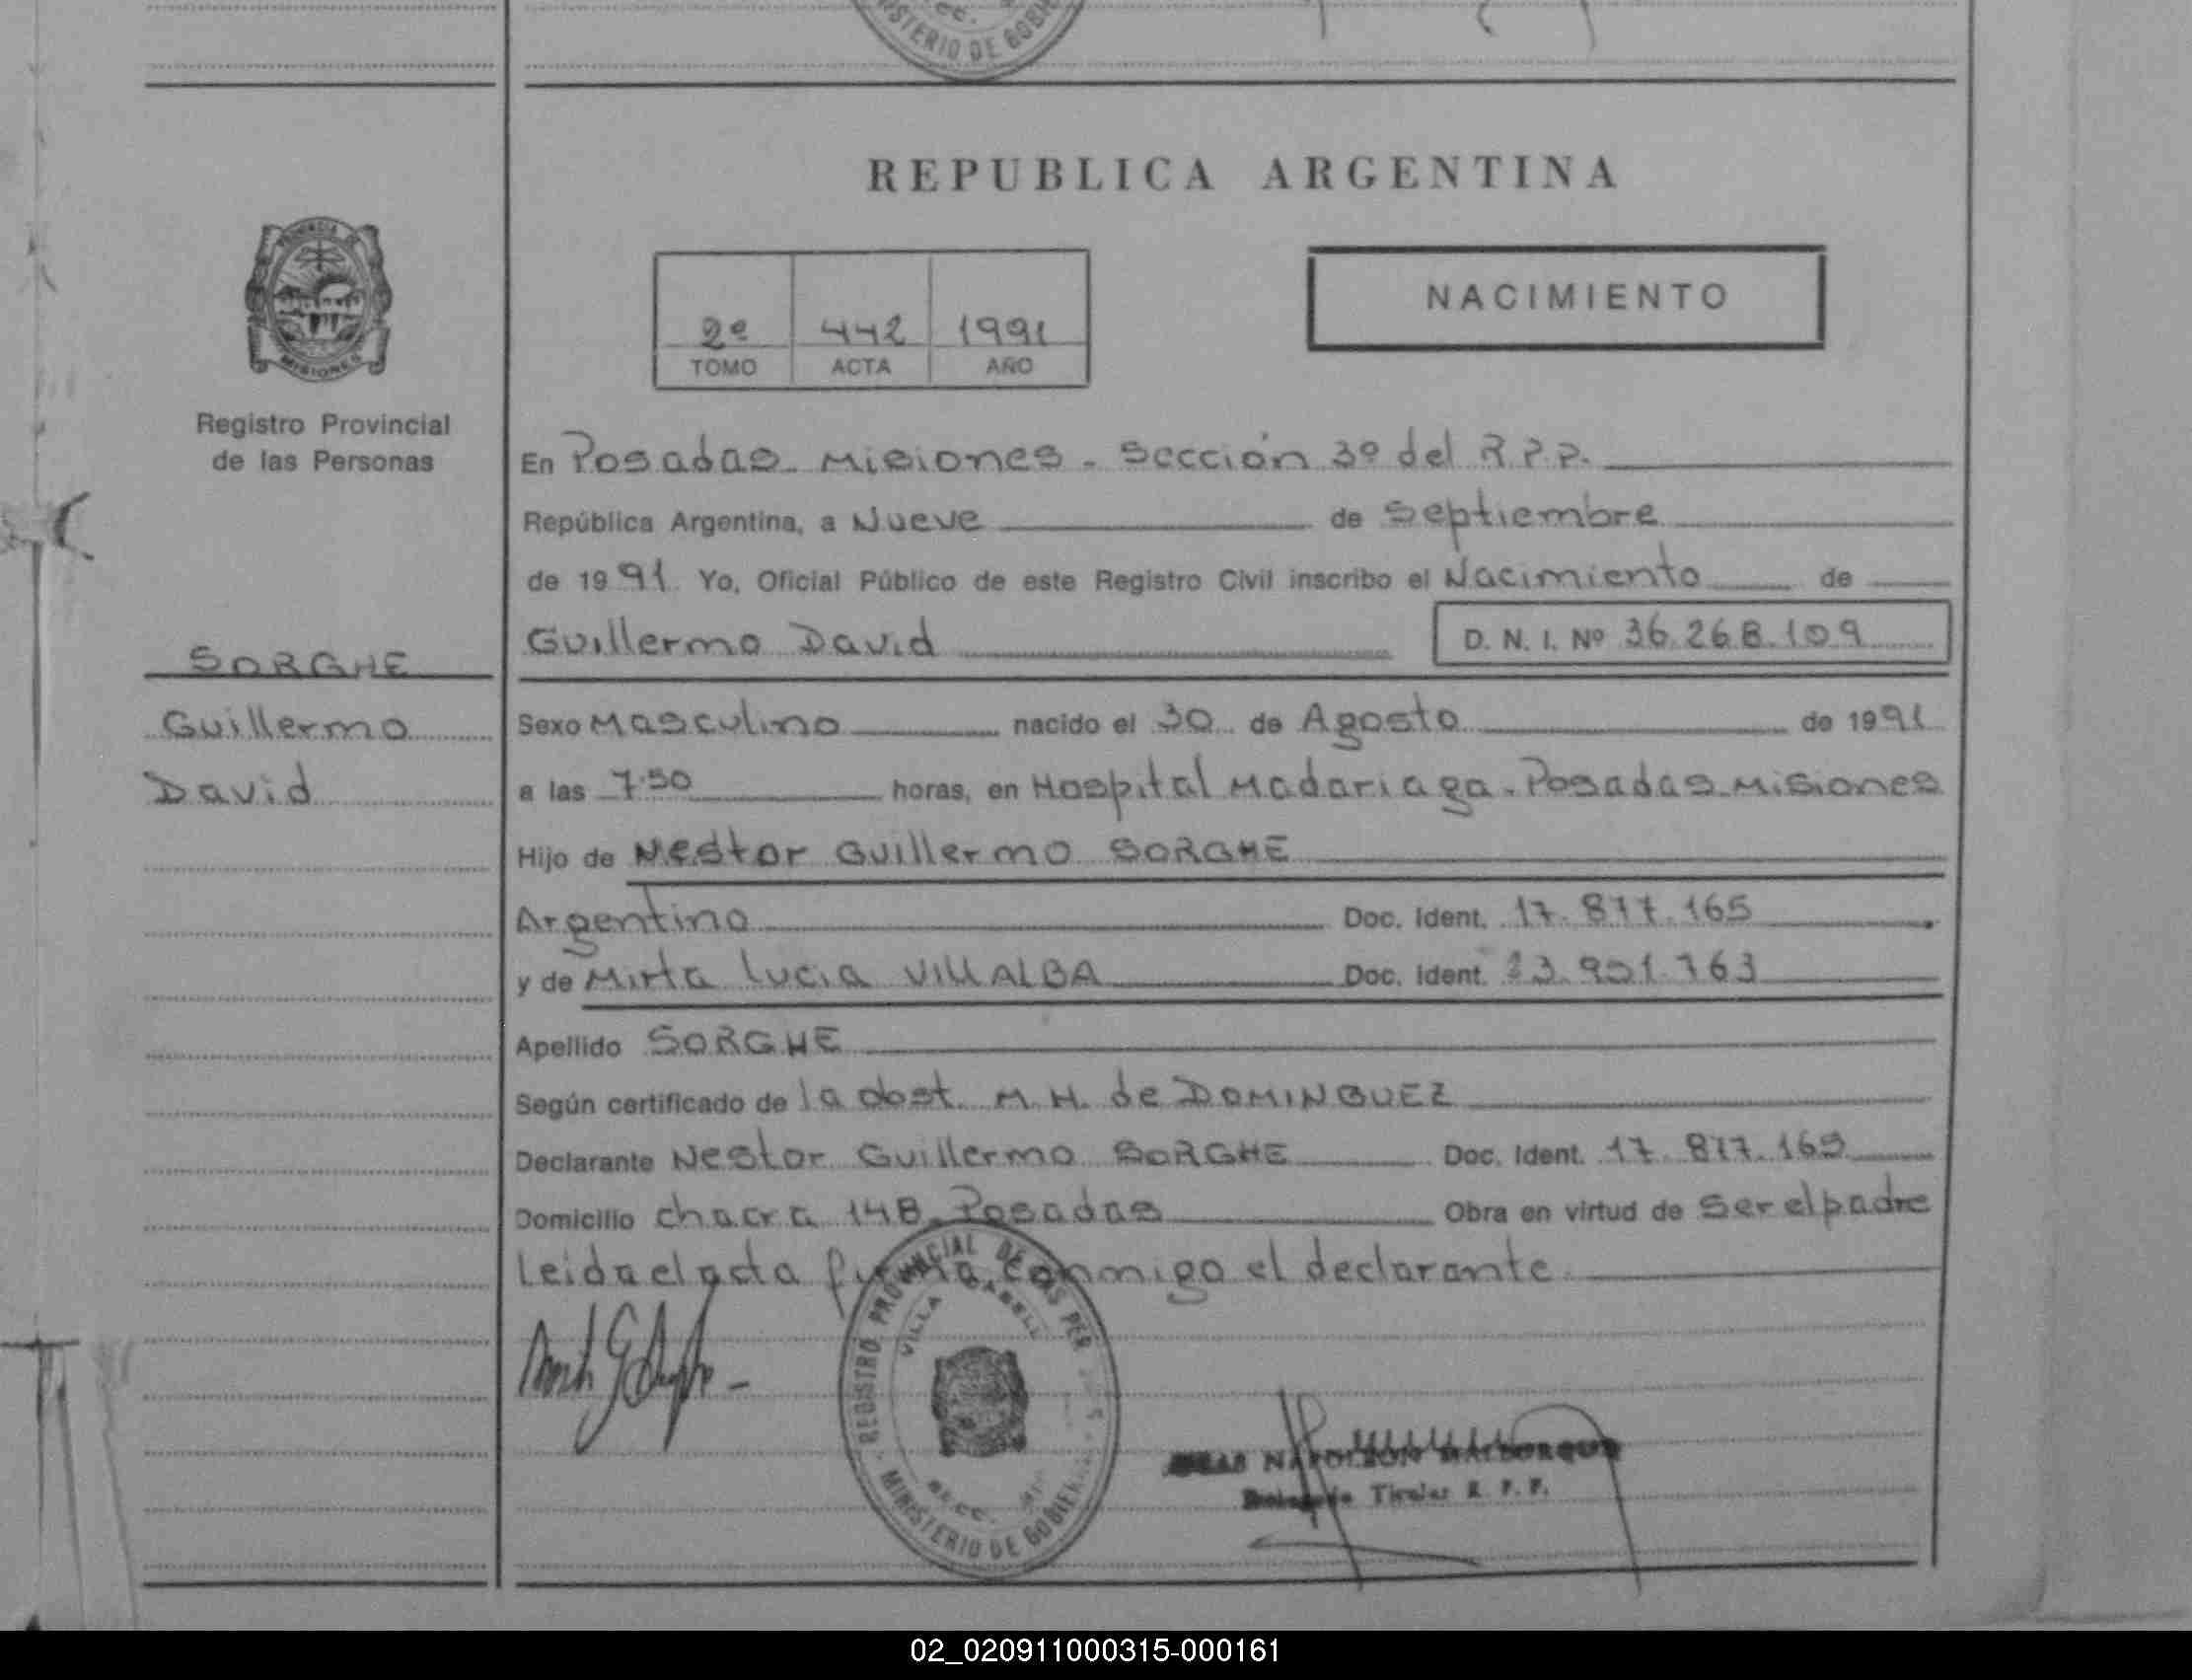 MINISTERIO DE GOBIE
REPUBLICA ARGENTINA
PROVINCIA DE
MISIONES
NACIMIENTO
2º 442 1991
TOMO ACTA AÑO
Registro Provincial
de las Personas
En Posadas. Misiones. Sección 3º del R.P.P.
República Argentina, a Nueve de Septiembre
de 1991. Yo, Oficial Público de este Registro Civil inscribo el Nacimiento de
Guillermo David D. N. I. Nº 36.268.109
SORGHE
Guillermo
David
Sexo Masculino nacido el 30 de Agosto de 1991
a las 7:50 horas, en Hospital Madariaga. Posadas. Misiones
Hijo de Nestor Guillermo SORGHE
Argentino Doc. Ident. 17.877.165
y de Mirta Lucia VILLALBA Doc. Ident. 23.951.763
Apellido SORGHE
Según certificado de la obst. M. H. de DOMINGUEZ
Declarante Nestor Guillermo SORGHE Doc. Ident. 17.877.165
Domicilio chacra 148. Posadas Obra en virtud de Ser el padre
Leida el acta firma conmigo el declarante
REGISTRO PROVINCIAL DE LAS PER
VILLA CABELL
SECC.
MINISTERIO DE GOBIER
NAPOLEON
Titular R. P. P.
02_020911000315-000161